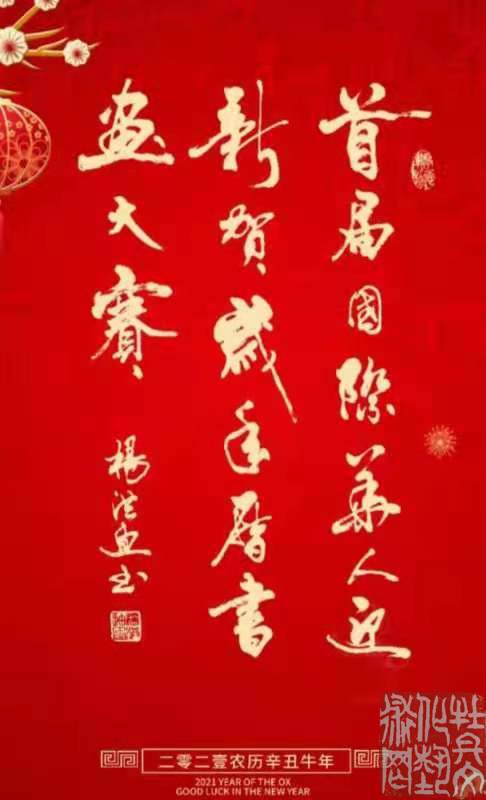 首届國際華人迎
新賀歲年曆書
畫大賽
楊书
二零二壹农历辛丑牛年
2021 YEAR OF THE OX
GOOD LUCK IN THE NEW YEAR
牡丹文
化藝
術网